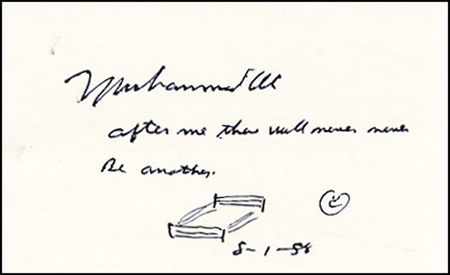 Muhammad Ali
after me there will never never
Be another.